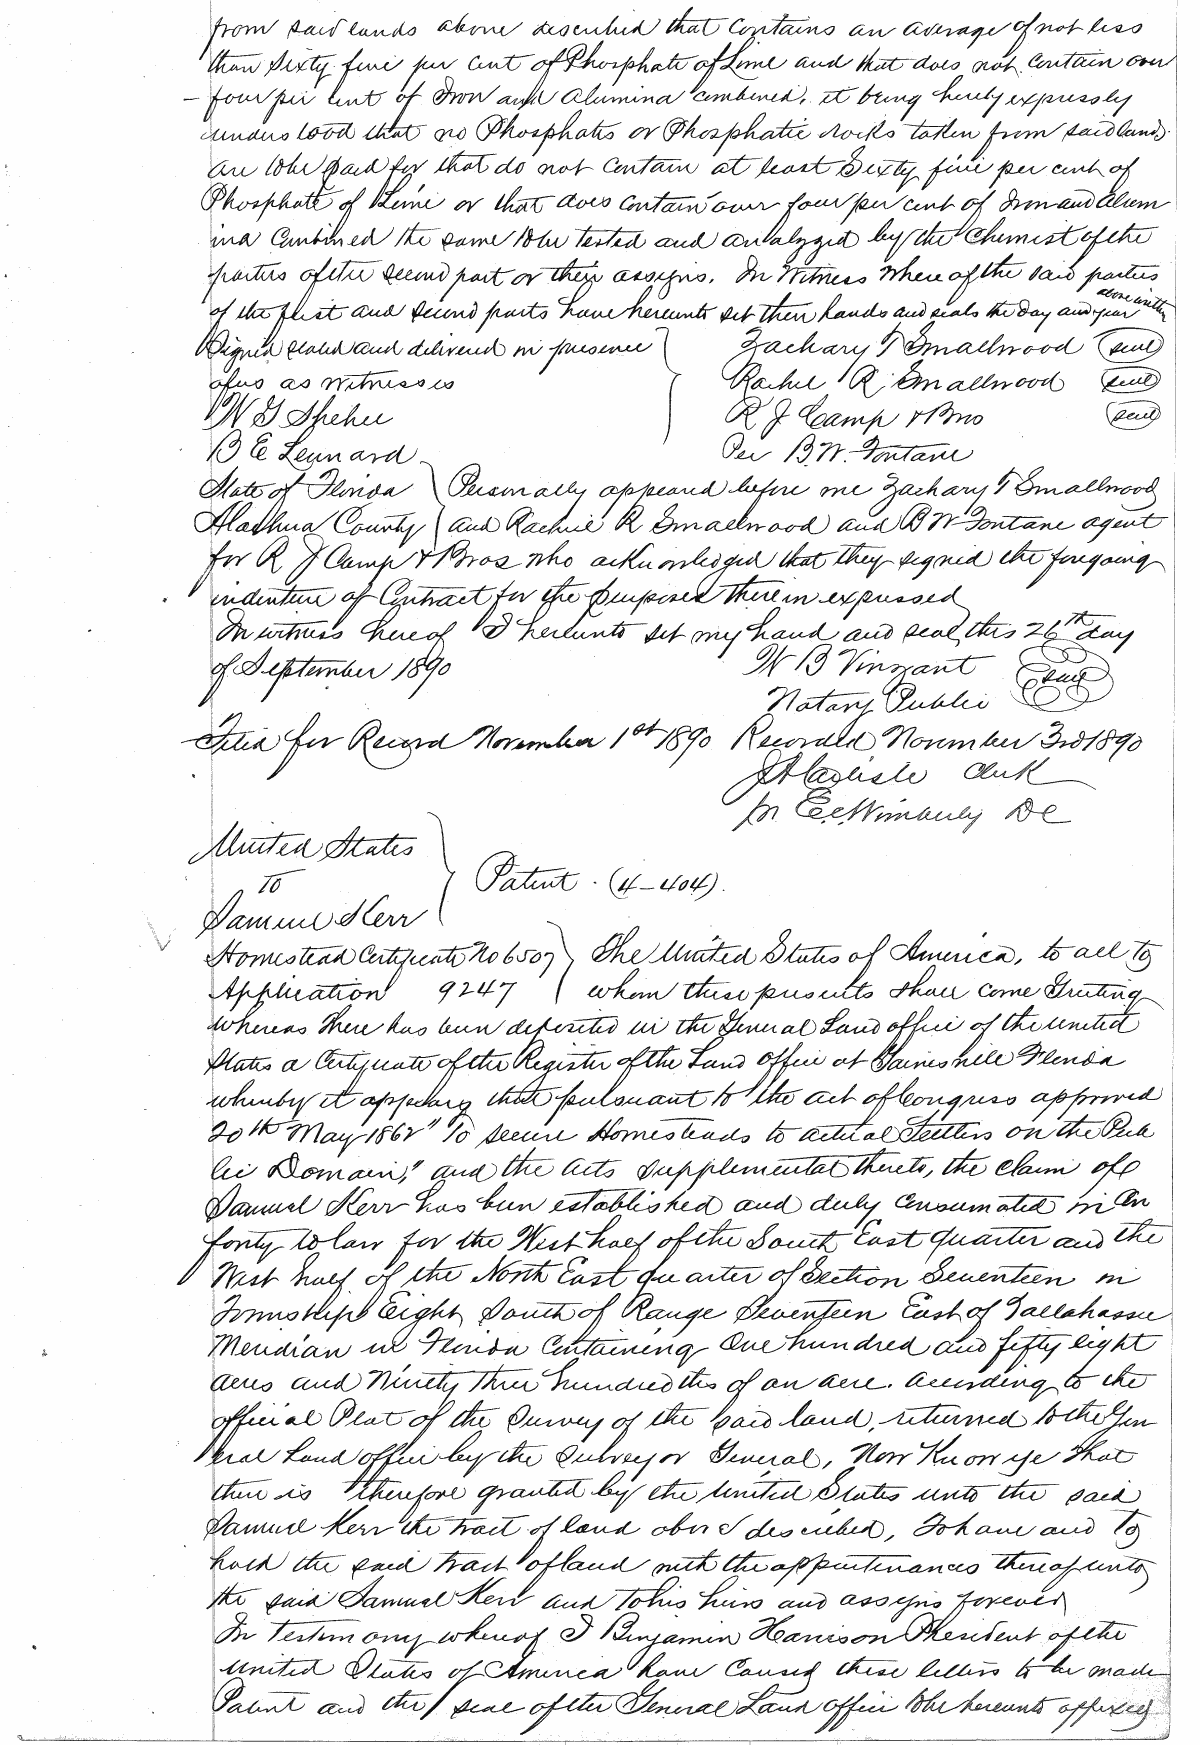 from said lands above described that contains an average of not less
than Sixty five per cent of Phosphate of Lime and that does not contain over
four per cent of Iron and Alumina combined, it being hereby expressly
understood that no Phosphates or Phosphatic rocks taken from said lands
are to be paid for that do not contain at least Sixty five per cent of
Phosphate of Lime or that does contain over four per cent of Iron and Alum
ina Combined the same to be tested and analyzed by the Chemist of the
parties of the second part or their assigns. In Witness Where of the said parties
of the first and second parts have hereunto set their hands and seals the day and year above written
Signed sealed and delivered in presence Zachary T Smallwood (seal)
of us as witnesses Rachel R. Smallwood (seal)
W G R J Camp & Bro (seal)
B E Leonard Per B. W. Fontane
State of Florida Personally appeared before me Zachary T Smallwood
Alachua County and Rachel R Smallwood and B W Fontane agent
for R J Camp & Bros who acknowledged that they signed the foregoing
indenture of Contract for the purposes therein expressed
In witness hereof I hereunto set my hand and seal this 26th day
of September 1890 W B Vinzant (seal)
Notary Public
Filed for Record November 1st 1890 Recorded November 3rd 1890
J A Carlisle Clerk
pr E. C. Wimberly DC
United States
To Patent. (4-404).
Samuel Kerr
Homestead Certificate No 6507 The United States of America, to all to
Application 9247 whom these presents shall come Greeting
Whereas There has been deposited in the General Land office of the United
States a Certificate of the Register of the Land office at Gainesville Florida
whereby it appears that pursuant to the act of Congress approved
20th May 1862 "To secure Homesteads to actual Settlers on the Pub
lic Domain," and the acts supplemental thereto, the claim of
Samuel Kerr has been established and duly Consumated in Con
formity to law for the West half of the South East quarter and the
West half of the North East quarter of Section Seventeen in
Township Eight South of Range Seventeen East of Tallahassee
Meridian in Florida Containing One hundred and fifty eight
acres and Ninety three hundredths of an acre. According to the
official Plat of the Survey of the said land, returned to the Gen
eral Land office by the Surveyor General, Now Know ye That
there is therefore granted by the United States unto the said
Samuel Kerr the tract of land above described, To have and to
hold the said tract of land with the appurtenances thereof unto
the said Samuel Kerr and to his heirs and assigns forever
In Testimony whereof I Benjamin Harrison President of the
United States of America have Caused these letters to be made
Patent and the seal of the General Land office to be hereunto affixed